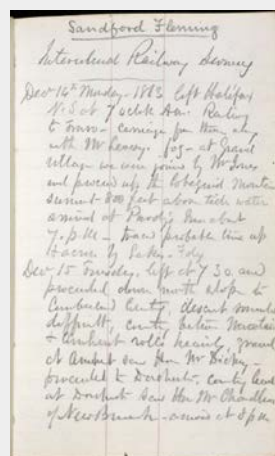 Sandford Fleming
Intercolonial Railway Survey
Dec 14th Monday. 1863 left Halifax
N.S. at 7 oclock A.M. Railway
to Truro - carriage from there
with Mr - fog - at Grand
village we were joined by Mr Jones
and proceed up the Cobequid Mountn
summit 800 feet above tide water
arrived at Purdy's Inn about
7. p.m - probable line up
by Folly
Dec 15 Tuesday. left at 7 30 and
proceeded down north slope to
Cumberland County, descent
difficult, country between Mountain
& Amherst rolls
at Amherst saw Hon Mr Dickey -
proceeded to Dorchester, county level
at Dorchester saw Hon Mr Chandler
of New Brunsk - arrived at 8 p.m